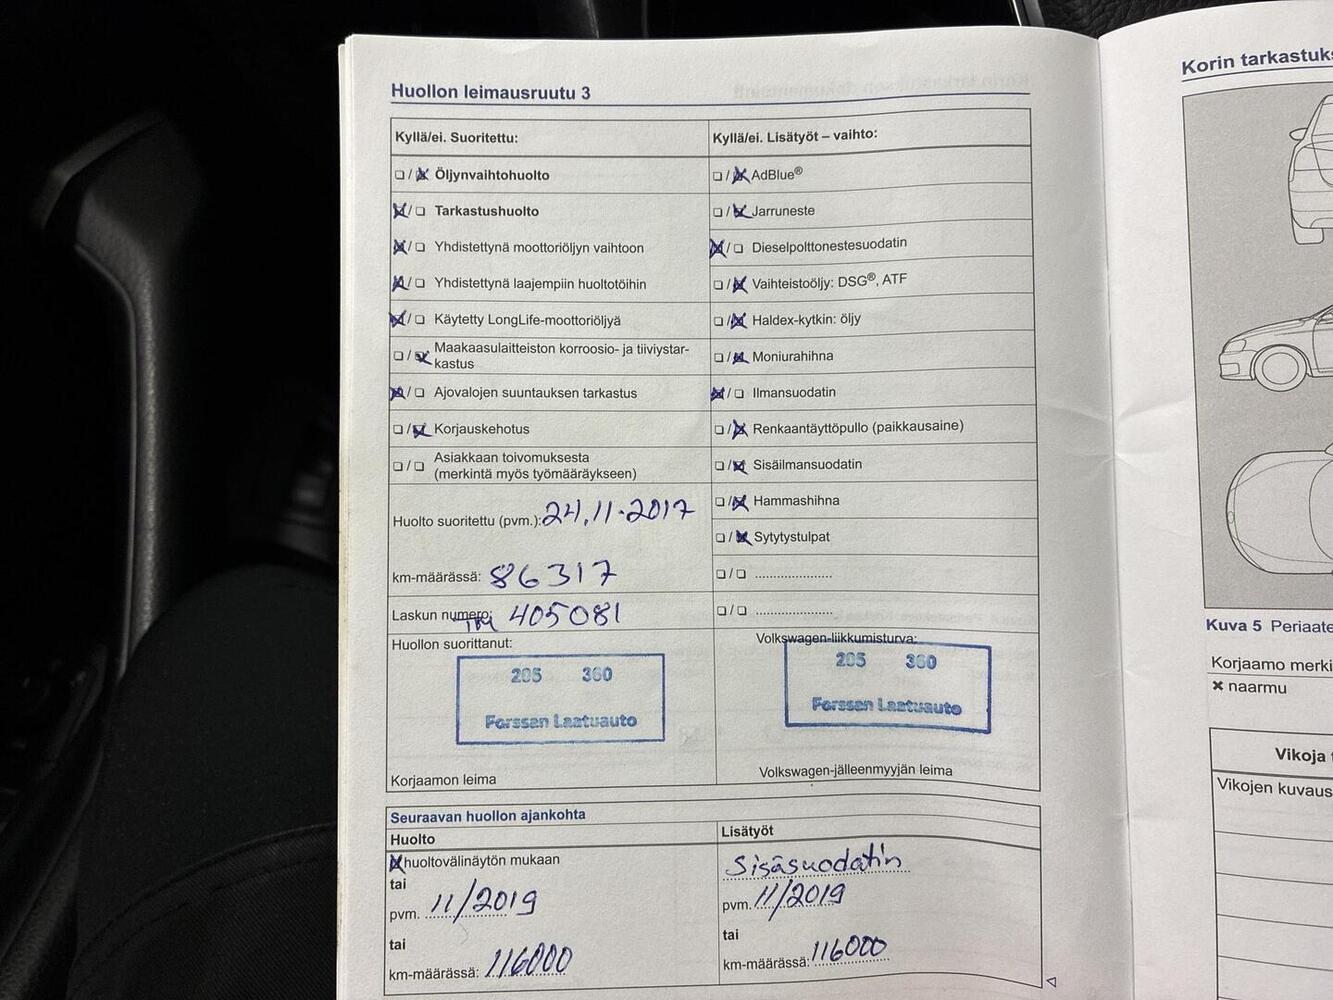 Huollon leimausruutu 3
Kyllä/ei. Suoritettu:
☐/☒ Öljynvaihtohuolto
☒/☐ Tarkastushuolto
☒/☐ Yhdistettynä moottoriöljyn vaihtoon
☒/☐ Yhdistettynä laajempiin huoltotöihin
☒/☐ Käytetty LongLife-moottoriöljyä
☐/☒ Maakaasulaitteiston korroosio- ja tiiviystar-
kastus
☒/☐ Ajovalojen suuntauksen tarkastus
☐/☒ Korjauskehotus
☐/☐ Asiakkaan toivomuksesta
(merkintä myös työmääräykseen)
Huolto suoritettu (pvm.): 24.11.2017
km-määrässä: 86317
Laskun numero: 405081
Huollon suorittanut:
205 360
Forssan Laatuauto
Korjaamon leima
Kyllä/ei. Lisätyöt – vaihto:
☐/☒ AdBlue®
☐/☒ Jarruneste
☒/☐ Dieselpolttonestesuodatin
☐/☒ Vaihteistoöljy: DSG®, ATF
☐/☒ Haldex-kytkin: öljy
☐/☒ Moniurahihna
☒/☐ Ilmansuodatin
☐/☒ Renkaantäyttöpullo (paikkausaine)
☐/☒ Sisäilmansuodatin
☐/☒ Hammashihna
☐/☒ Sytytystulpat
☐/☐ ......................
☐/☐ ......................
Volkswagen-liikkumisturva:
205 360
Forssan Laatuauto
Volkswagen-jälleenmyyjän leima
Seuraavan huollon ajankohta
Huolto
☒ huoltovälinäytön mukaan
tai
pvm. 11/2019
tai
km-määrässä: 116000
Lisätyöt
Sisäsuodatin
pvm. 11/2019
tai
km-määrässä: 116000
Korin tarkastuks
Kuva 5 Periaate
Korjaamo merki
✖ naarmu
Vikoja
Vikojen kuvaus